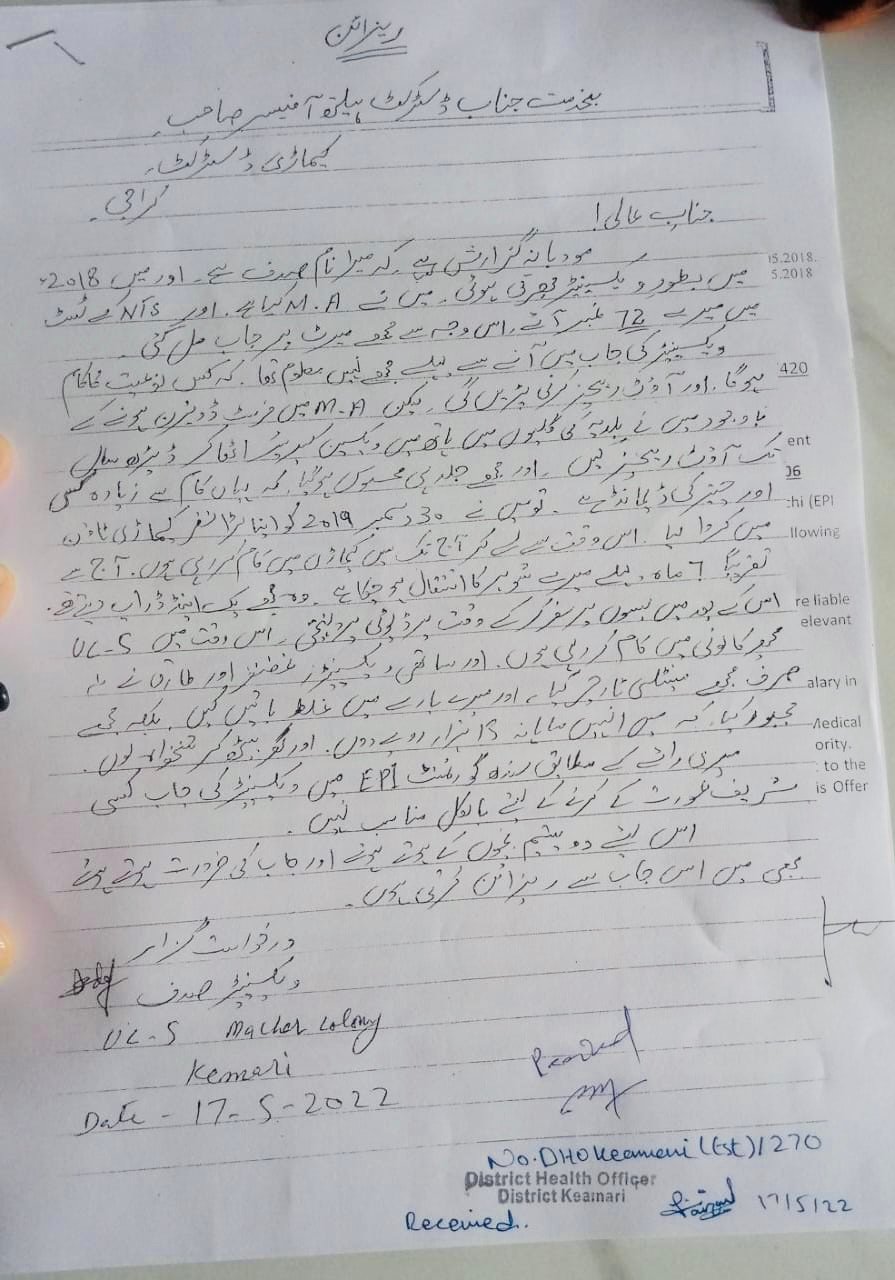 ریزائن
بخدمت جناب ڈسٹرکٹ ہیلتھ آفیسر صاحب۔
کیماڑی ڈسٹرکٹ۔
کراچی۔
جناب عالی!
مودبانہ گزارش ہے کہ میرا نام صدف ہے۔ اور میں 2018ء
میں بطور ویکسینیٹر بھرتی ہوئی۔ میں نے M.A کیا ہے۔ اور NTS کے ٹسٹ
میں میرے 72 نمبر آئے۔ اس وجہ سے مجھے میرٹ پر جاب مل گئی۔
ویکسینیٹر کی جاب میں آنے سے پہلے مجھے نہیں معلوم تھا۔ کہ کس نوعیت کا کام
ہوگا۔ اور آؤٹ ریچز کرنی پڑیں گی۔ لیکن M.A میں فرسٹ ڈویژن ہونے کے
باوجود میں نے بلدیہ کی گلیوں میں ہاتھ میں ویکسین کیریئر اٹھا کر ڈیڑھ سال
تک آؤٹ ریچز کیں۔ اور مجھے جلد ہی محسوس ہوگیا کہ یہاں کام سے زیادہ کسی
اور چیز کی ڈیمانڈ ہے۔ تو میں نے 30 دسمبر 2019 کو اپنا ٹرانسفر کیماڑی ٹاؤن
میں کروا لیا۔ اس وقت سے لے کر آج تک میں کیماڑی میں کام کر رہی ہوں۔ آج سے
تقریباً 6 ماہ پہلے میرے شوہر کا انتقال ہو چکا ہے۔ وہ مجھے پک اینڈ ڈراپ دیتے تھے۔
اس کے بعد میں بسوں پر سفر کرکے وقت پر ڈیوٹی پر پہنچتی۔ اس وقت میں UC-5
مچھر کالونی میں کام کر رہی ہوں۔ اور ساتھی ویکسینیٹرز غضنفر اور طارق نے نہ
صرف مجھے مینٹلی ٹارچر کیا، اور میرے بارے میں غلط باتیں کیں۔ بلکہ مجھے
مجبور کیا، کہ میں انہیں ماہانہ ہزار روپے دوں۔ اور گھر بیٹھ کر تنخواہ لوں۔
میری رائے کے مطابق سندھ گورنمنٹ EPI میں ویکسینیٹر کی جاب کسی
شریف عورت کے کرنے کے لئے بالکل مناسب نہیں۔
اس لئے دو یتیم بچوں کے ہوتے ہوئے اور جاب کی ضرورت ہوتے ہوئے
بھی میں اس جاب سے ریزائن کرتی ہوں۔
درخواست گزار
ویکسینیٹر صدف
UC-5 Macher Colony
Kemari
Date - 17-5-2022
No. DHO Keamari (Est)/270
District Health Officer
District Keamari
17/5/22
Received.
5.2018.
5.2018
420
ent
06
chi (EPI
llowing
re liable
elevant
alary in
Medical
ority.
to the
is Offer